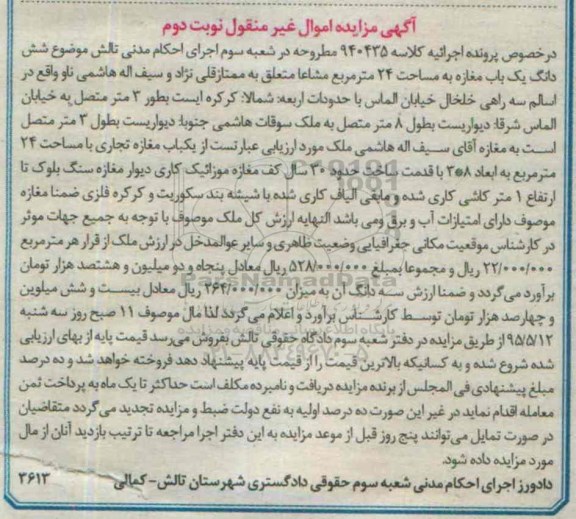 آگهی مزایده اموال غیر منقول نوبت دوم
درخصوص پرونده اجرائیه کلاسه ۹۴۰۴۳۵ مطروحه در شعبه سوم اجرای احکام مدنی تالش موضوع شش
دانگ یک باب مغازه به مساحت ۲۴ مترمربع مشاعا متعلق به ممتازقلی نژاد و سیف اله هاشمی ناو واقع در
اسالم سه راهی خلخال خیابان الماس با حدودات اربعه: شمالا: کرکره ایست بطور ۳ متر متصل به خیابان
الماس شرقا: دیواریست بطول ۸ متر متصل به ملک سوقات هاشمی جنوبا: دیواریست بطول ۳ متر متصل
است به مغازه آقای سیف اله هاشمی ملک مورد ارزیابی عبارتست از یکباب مغازه تجاری با مساحت ۲۴
مترمربع به ابعاد ۸*۳ با قدمت ساخت حدود ۳۰ سال کف مغازه موزائیک کاری دیوار مغازه سنگ بلوک تا
ارتفاع ۱ متر کاشی کاری شده و مابقی الیاف کاری شده با شیشه بند سکوریت و کرکره فلزی ضمنا مغازه
موصوف دارای امتیازات آب و برق ومی باشد النهایه ارزش کل ملک موصوف با توجه به جمیع جهات موثر
در کارشناس موقعیت مکانی جغرافیایی وضعیت ظاهری و سایر عوالمدخل در ارزش ملک از قرار هر مترمربع
۲۲/۰۰۰/۰۰۰ ریال و مجموعا بمبلغ ۵۲۸/۰۰۰/۰۰۰ ریال معادل پنجاه و دو میلیون و هشتصد هزار تومان
برآورد می گردد و ضمنا ارزش سه دانگ آن به میزان ۲۶۴/۰۰۰/۰۰۰ ریال معادل بیست و شش میلوین
و چهارصد هزار تومان توسط کارشناس برآورد و اعلام می گردد لذا مال موصوف ۱۱ صبح روز سه شنبه
۹۵/۵/۱۲ از طریق مزایده در دفتر شعبه سوم دادگاه حقوقی تالش بفروش می رسد قیمت پایه از بهای ارزیابی
شده شروع شده و به کسانیکه بالاترین قیمت را از قیمت پایه پیشنهاد دهد فروخته خواهد شد و ده درصد
مبلغ پیشنهادی فی المجلس از برنده مزایده دریافت و نامبرده مکلف است حداکثر تا یک ماه به پرداخت ثمن
معامله اقدام نماید در غیر این صورت ده درصد اولیه به نفع دولت ضبط و مزایده تجدید می گردد متقاضیان
در صورت تمایل می توانند پنج روز قبل از موعد مزایده به این دفتر اجرا مراجعه تا ترتیب بازدید آنان از مال
مورد مزایده داده شود.
دادورز اجرای احکام مدنی شعبه سوم حقوقی دادگستری شهرستان تالش - کمالی
۳۶۱۳